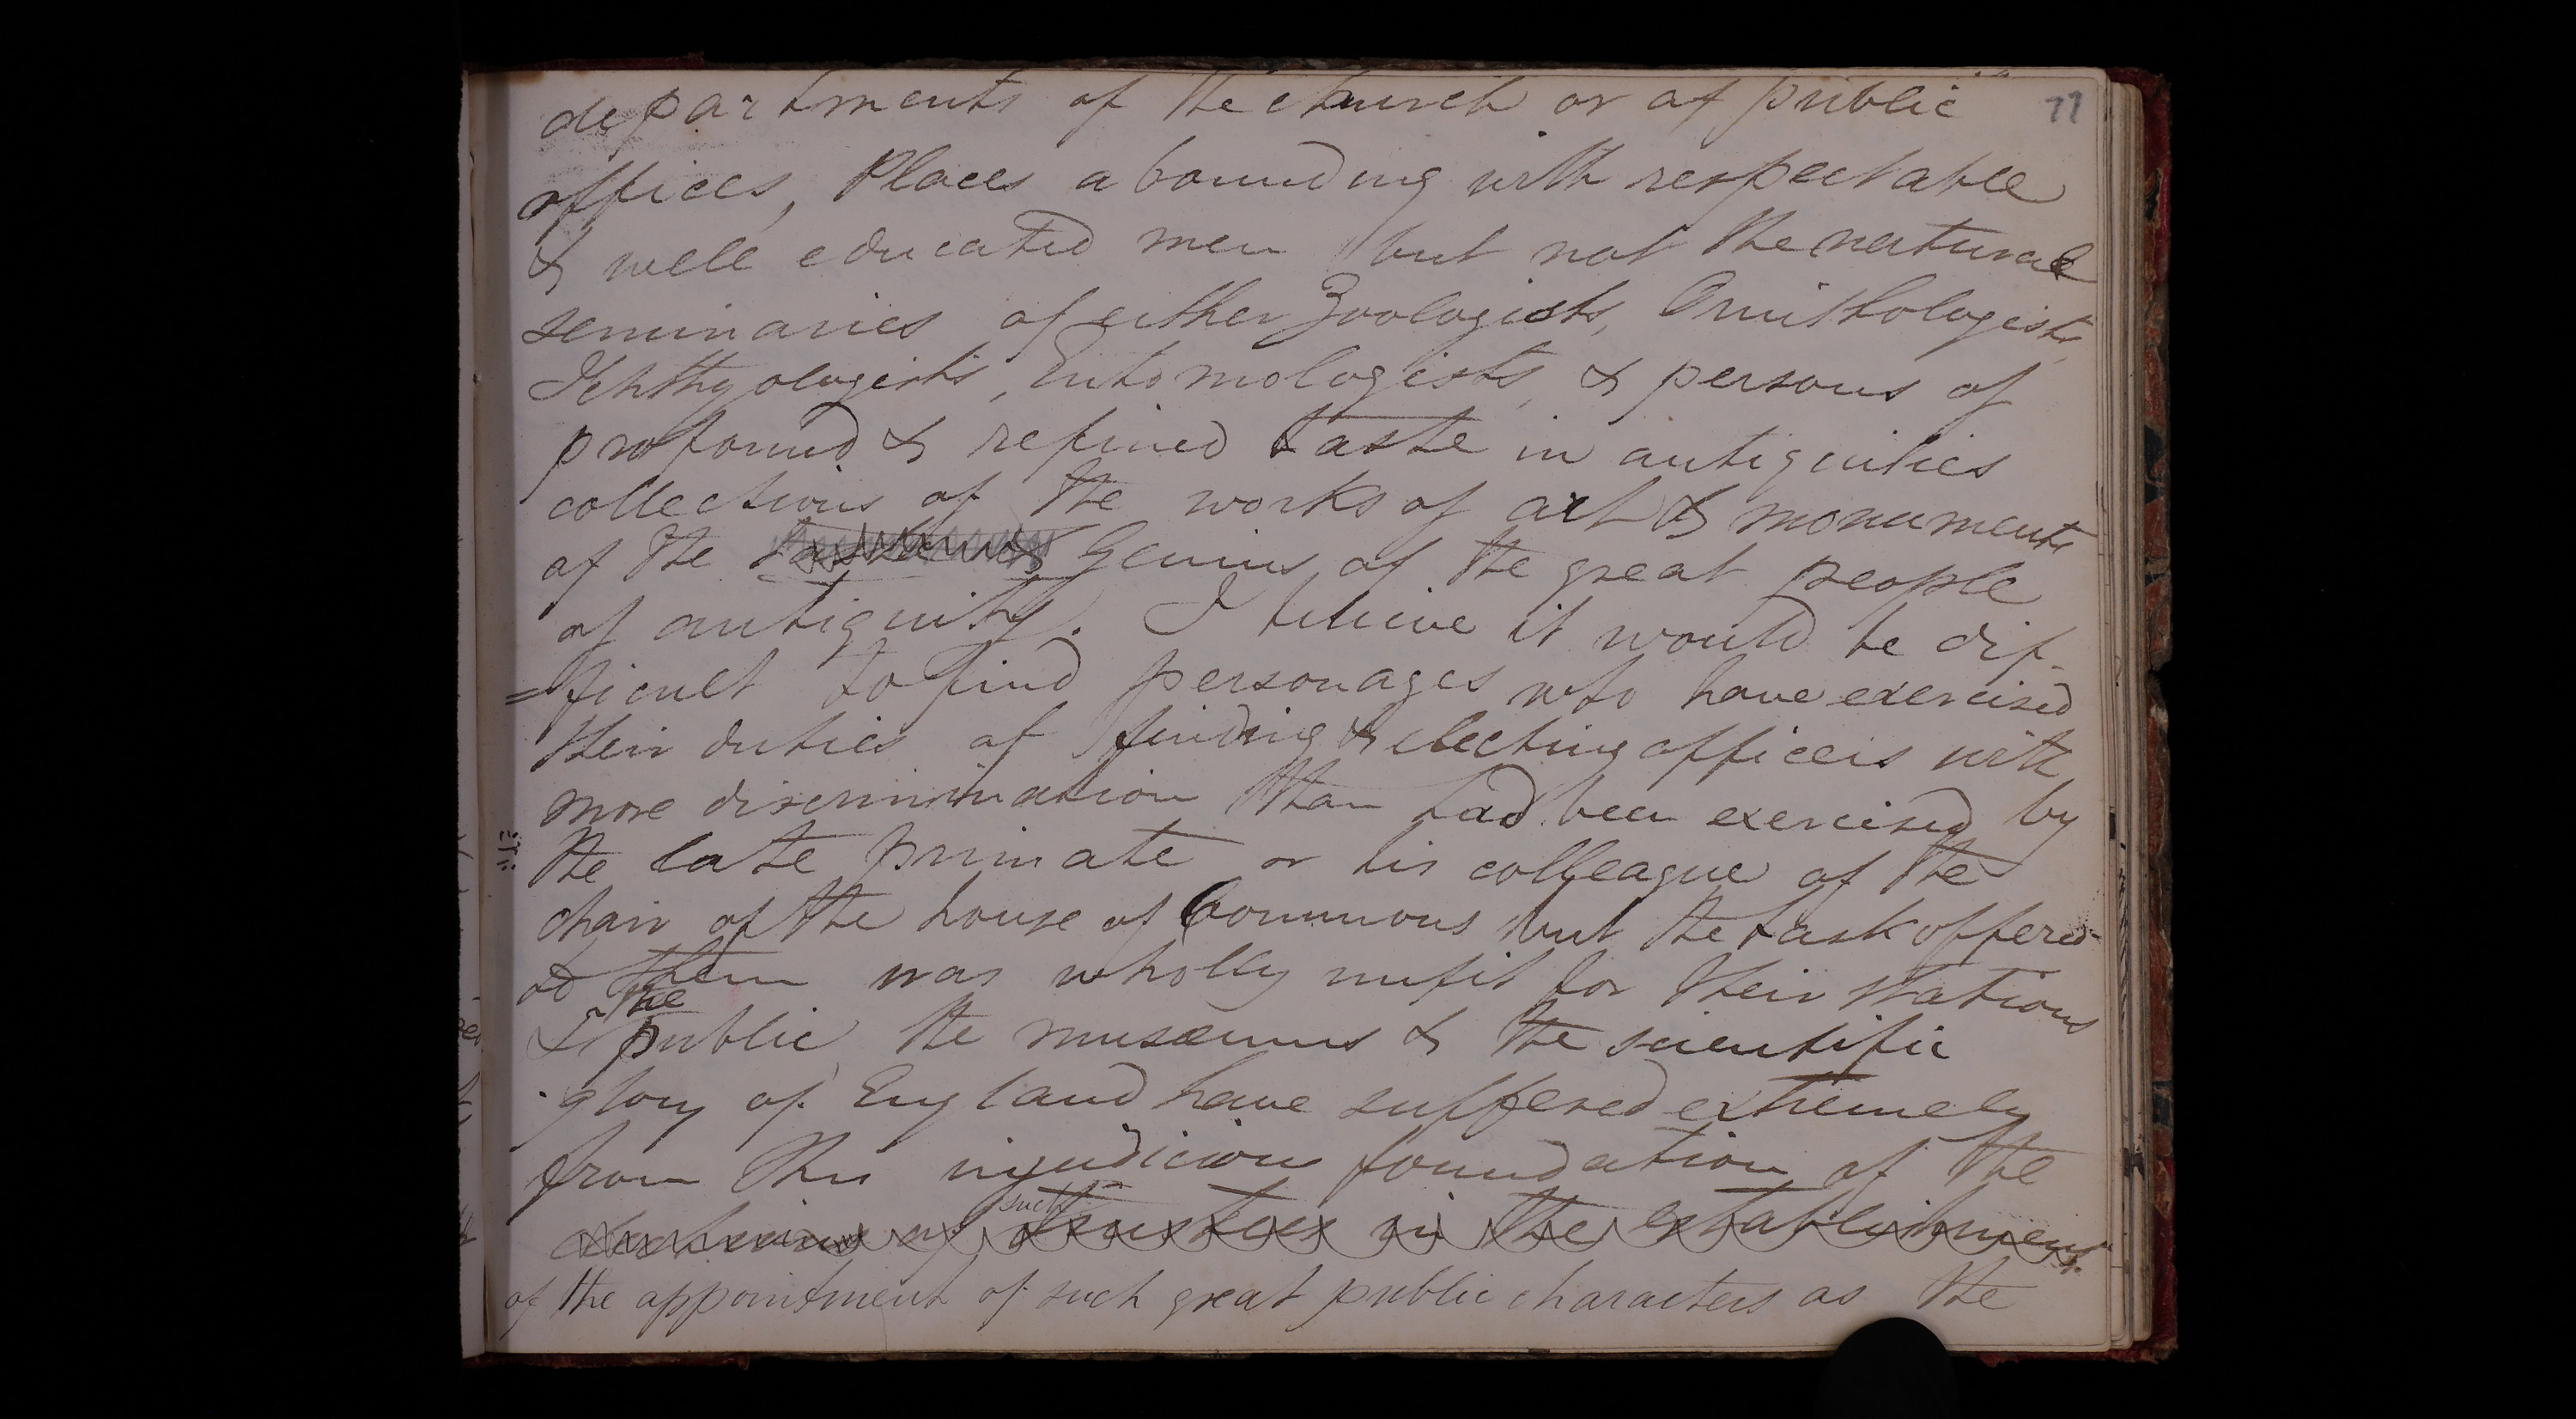 77
departments of the church or of public
offices, Places abounding with respectable
& well educated men but not the natural
seminaries of either Zoologists, Ornithologists,
Ichthyologists, Entomologists, & persons of
profound & refined taste in antiquities
collections of the works of art & monuments
of the Genius of the great people
of antiquity. I believe it would be dif-
=ficult to find personages who have exercised
their duties of finding & electing officers with
more discrimination than had been exercised by
the late primate or his colleague of the
chair of the house of Commons but the task offered
to them was wholly unfit for their stations
& the public, the museums & the scientific
glory of England have suffered extremely
from this injudicious foundation of the
of such trustees in the establishment.
of the appointment of such great public characters as the